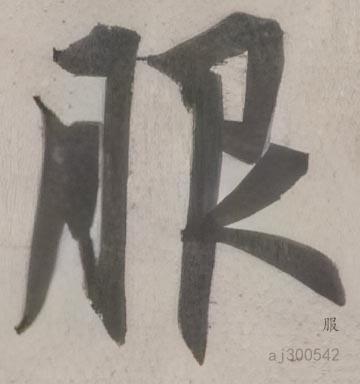 服
服
aj300542